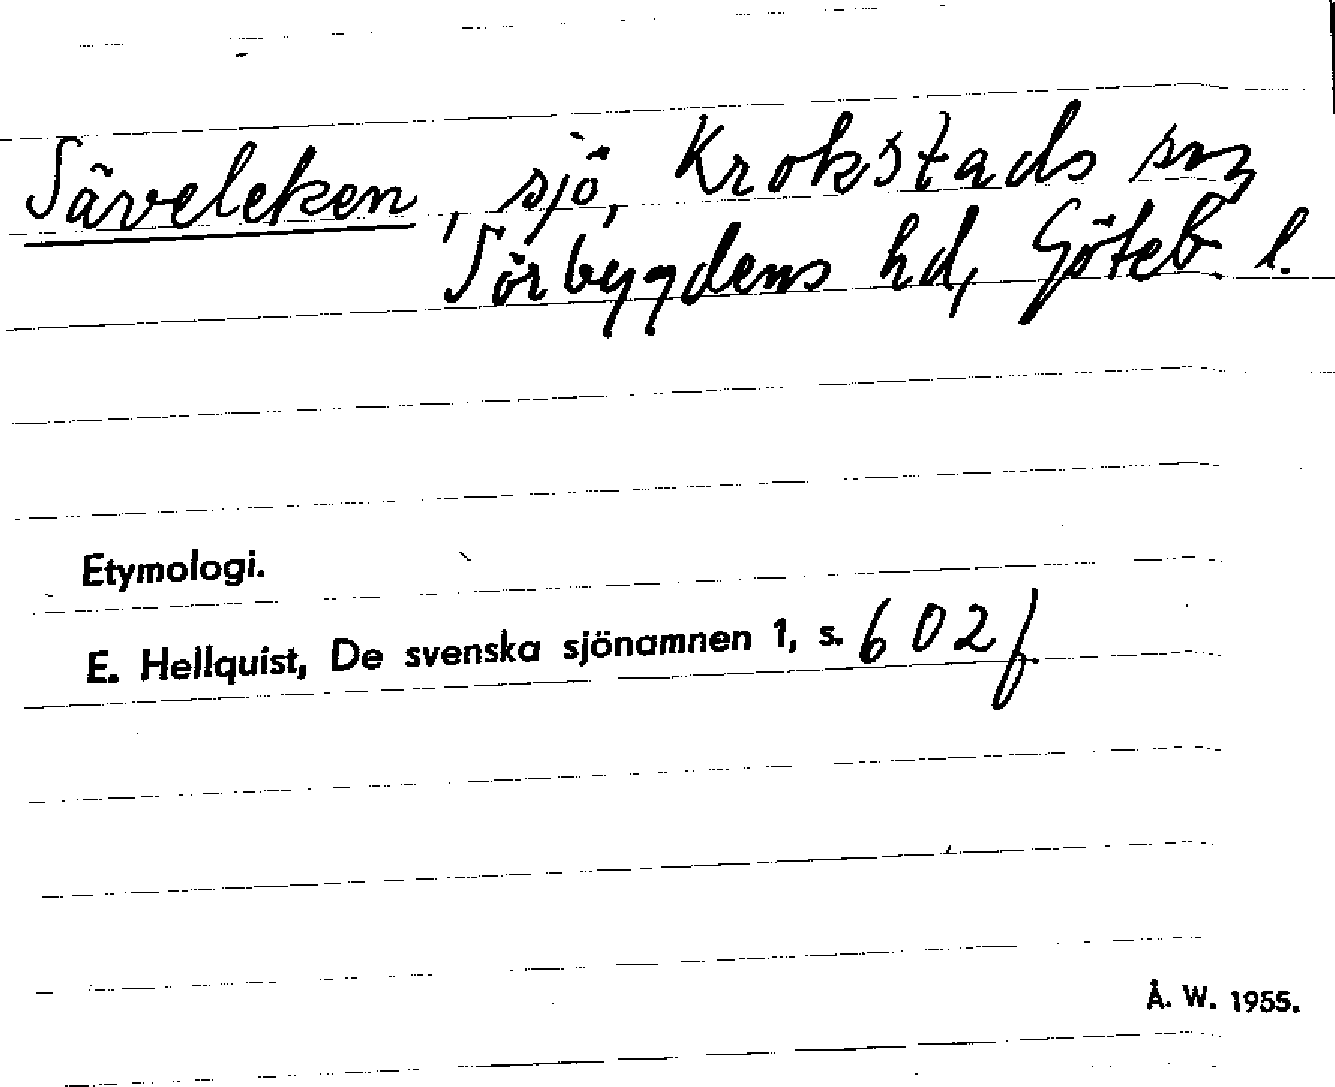 Säveleken, sjö, Krokstads sn,
Sörbygdens hd, Göteb. l.
Etymologi.
E. Hellquist, De svenska sjönamnen 1, s. 602 f.
Å. W. 1955.